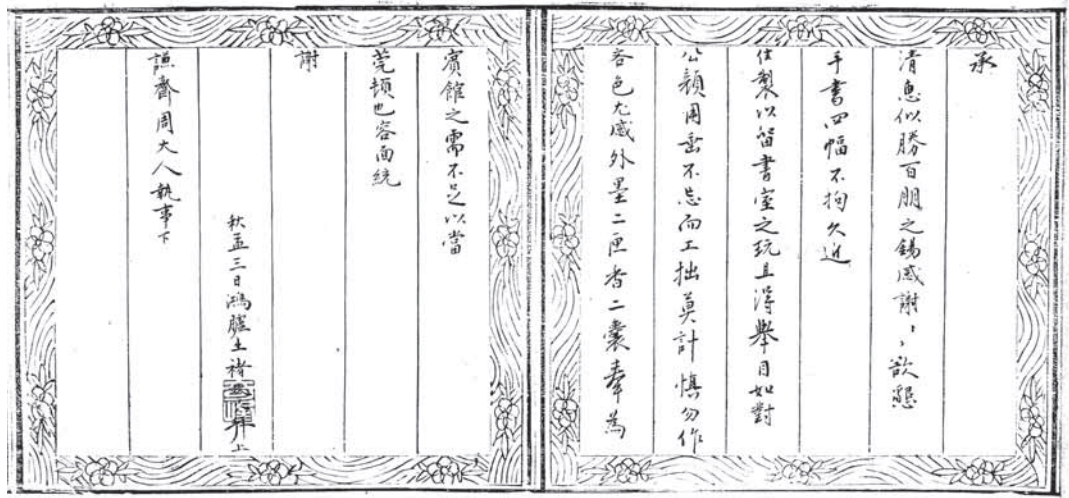 承
清惠似勝百朋之錫感謝〻欲懇
手書四幅不拘久近
佳製以留書室之玩且得舉目如對
公顏用寄不忘而工拙莫計慎勿作
吝色尤感外墨二匣香二囊奉為
賓館之需不足以當
莞頓也容面統
謝
秋孟三日鴻臚士褚拜上
謙齋周大人執事下